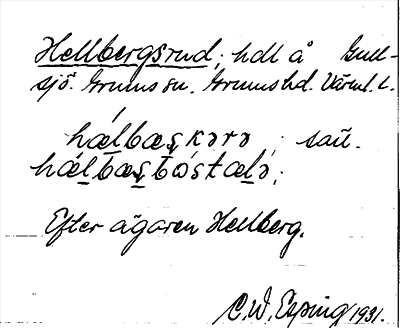 Hellbergsrud, hdl å Gull-
sjö. Grums sn. Grums hd. Värml. l.
hǽlbæskərə ; san.
hǽlbæsbóstælə ;
Efter ägaren Hellberg.
C.W. Esping 1931.